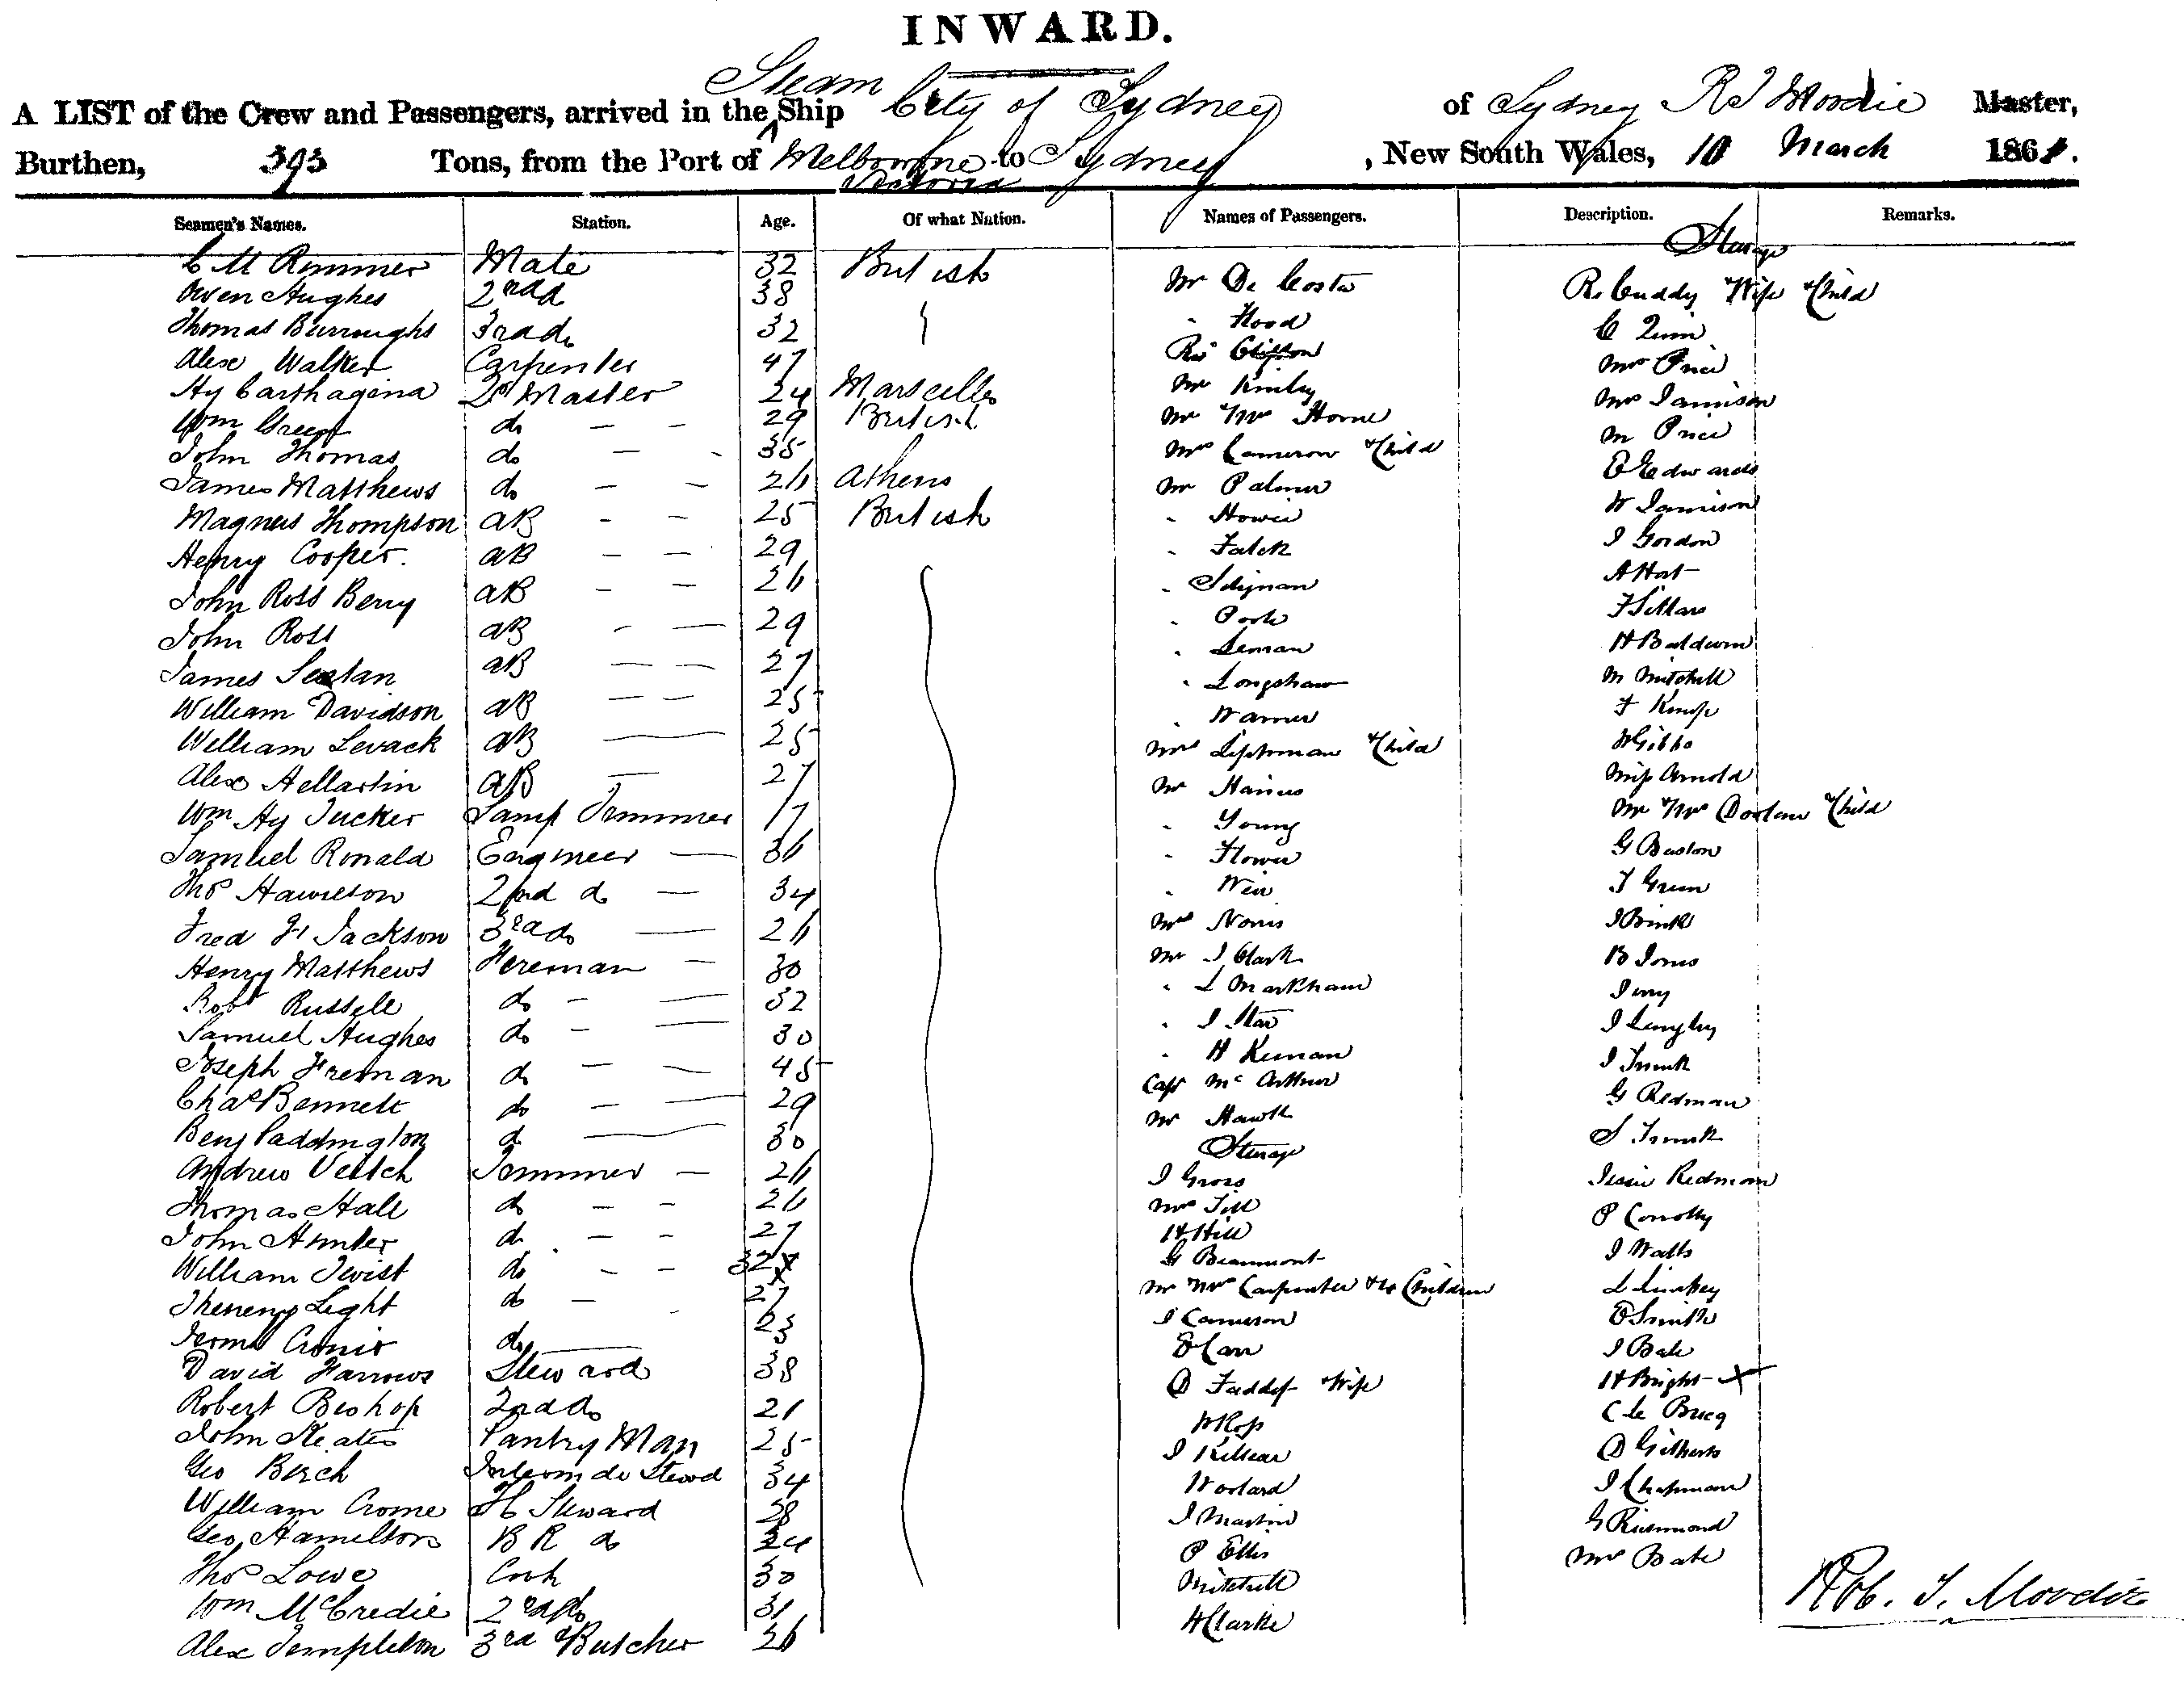 INWARD.
Steam
A LIST of the Crew and Passengers, arrived in the Ship City of Sydney of Sydney R T Moodie Master,
Burthen, 393 Tons, from the Port of Melbourne to Sydney, New South Wales, 10 March 1861.
Victoria
Seamen's Names. Station. Age. Of what Nation. Names of Passengers. Description. Remarks.
Sterage
C M Rommer Mate 32 British Mr De Costa R. Cuddy Wife & Child
Owen Hughes 2nd do 38 " Hood C Quin
Thomas Burroughs 3rd do 32 Revd Clifton Mrs Price
Alex Walker Carpenter 47 Mr Kinley Mrs Jamison
Hy Carthagina Qr Master 24 Marseilles Mr & Mrs Horne M Price
Wm Green do 29 British Mrs Cameron & Child E Edwards
John Thomas do 35 Mr Palmer W Jamison
James Matthews do 26 Athens " Howie J Gordon
Magnus Thompson AB 25 British " Falck A Hart
Henry Cooper. AB 29 " Selignan F Sillars
John Ross Berry AB 26 " Poole H Baldwin
John Ross AB 29 " Leman M Mitchell
James Sextan AB 27 " Longshaw F Kemp
William Davidson AB 25 " Warner W Gibbs
William Levack AB 25 Mrs Lipshman & Child Miss Arnold
Alex AB 27 Mr Haines Mr & Mrs Doolan & Child
Wm Hy Tucker Lamp Trimmer 17 " Young G Baston
Samuel Ronald Engineer 36 " Flower J Green
Thos Hamilton 2nd do 34 " Weir
Fred Jackson 3rd do 26 Mrs Norris B Jones
Henry Matthews Fireman 30 Mr J Clark
Robt Russell do 32 " L Markham J Langley
Samuel Hughes do 30 " J Star
Joseph Freeman do 45 " H Keenan G Redman
Chas Bennett do 29 Capt McArthur
Benj Paddington do 30 Mr Jessie Redman
Andrew Veitch Trimmer 26 Sterage P Conolly
Thomas Hall do 26 J Gross J Watts
John Hunter do 27 Mrs Till
William Twist do 32 H Hill E Smith
Light do 27 G Beaumont J Bate
Cronin do 23 Mr & Mrs Carpenter & Children H Bright X
David Farrows Steward 38 J Cameron C le Bucq
Robert Bishop 2nd do 21 E Carr D Gilberts
John Keates Pantry Man 25 D & Wife J Chapman
Geo Birch Intermde Stewd 34 W Ross G Richmond
William Crome Steward 28 J Killear Mrs Bate
Geo Hamilton B R do 24 Woolard
Thos Lowe Cook 30 J Martin
Wm McCredie 2nd do 31 P Ellis
Alex Templeton 3rd & Butcher 26 Mitchell
H Clarke
Rob. T. Moodie